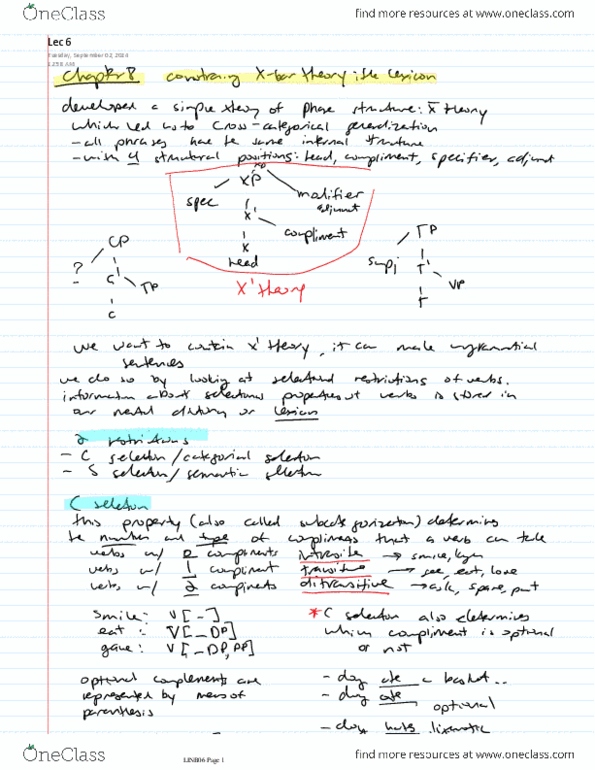 OneClass
find more resources at www.oneclass.com
Lec 6
Tuesday, September 02, 2014
12:58 AM
chapter 8 constraining X-bar theory: the lexicon
developed a simple theory of phrase structure: X theory
which led us to cross-categorical generalization
- all phrases have the same internal structure
- with 4 structural positions: head, compliment, specifier, adjunct
XP
XP
spec
modifier
adjunct
X'
compliment
X
head
X' theory
CP
?
C'
TP
C
TP
subj
T'
VP
T
we want to contain X' theory, it can make ungrammatical
sentences
we do so by looking at selectional restrictions of verbs.
information about selectional properties of verbs is stored in
our mental dictionary or lexicon
2 restrictions
- C selection/categorial selection
- S selection/semantic selection
C selection
this property (also called subcategorization) determines
the number and type of compliments that a verb can take
verbs w/ 0 compliments intransitive → smile,
verbs w/ 1 compliment transitive → see, eat, love
verbs w/ 2 compliments ditransitive → ask, spare, put
smile: V[-]
eat: V[_DP]
gave: V[_DP, PP]
* C selection also determines
which compliment is optional
or not
optional complements are
represented by means of
parenthesis
- dog ate a basket..
- dog ate
optional
- dog
OneClass
LINB06 Page 1
find more resources at www.oneclass.com